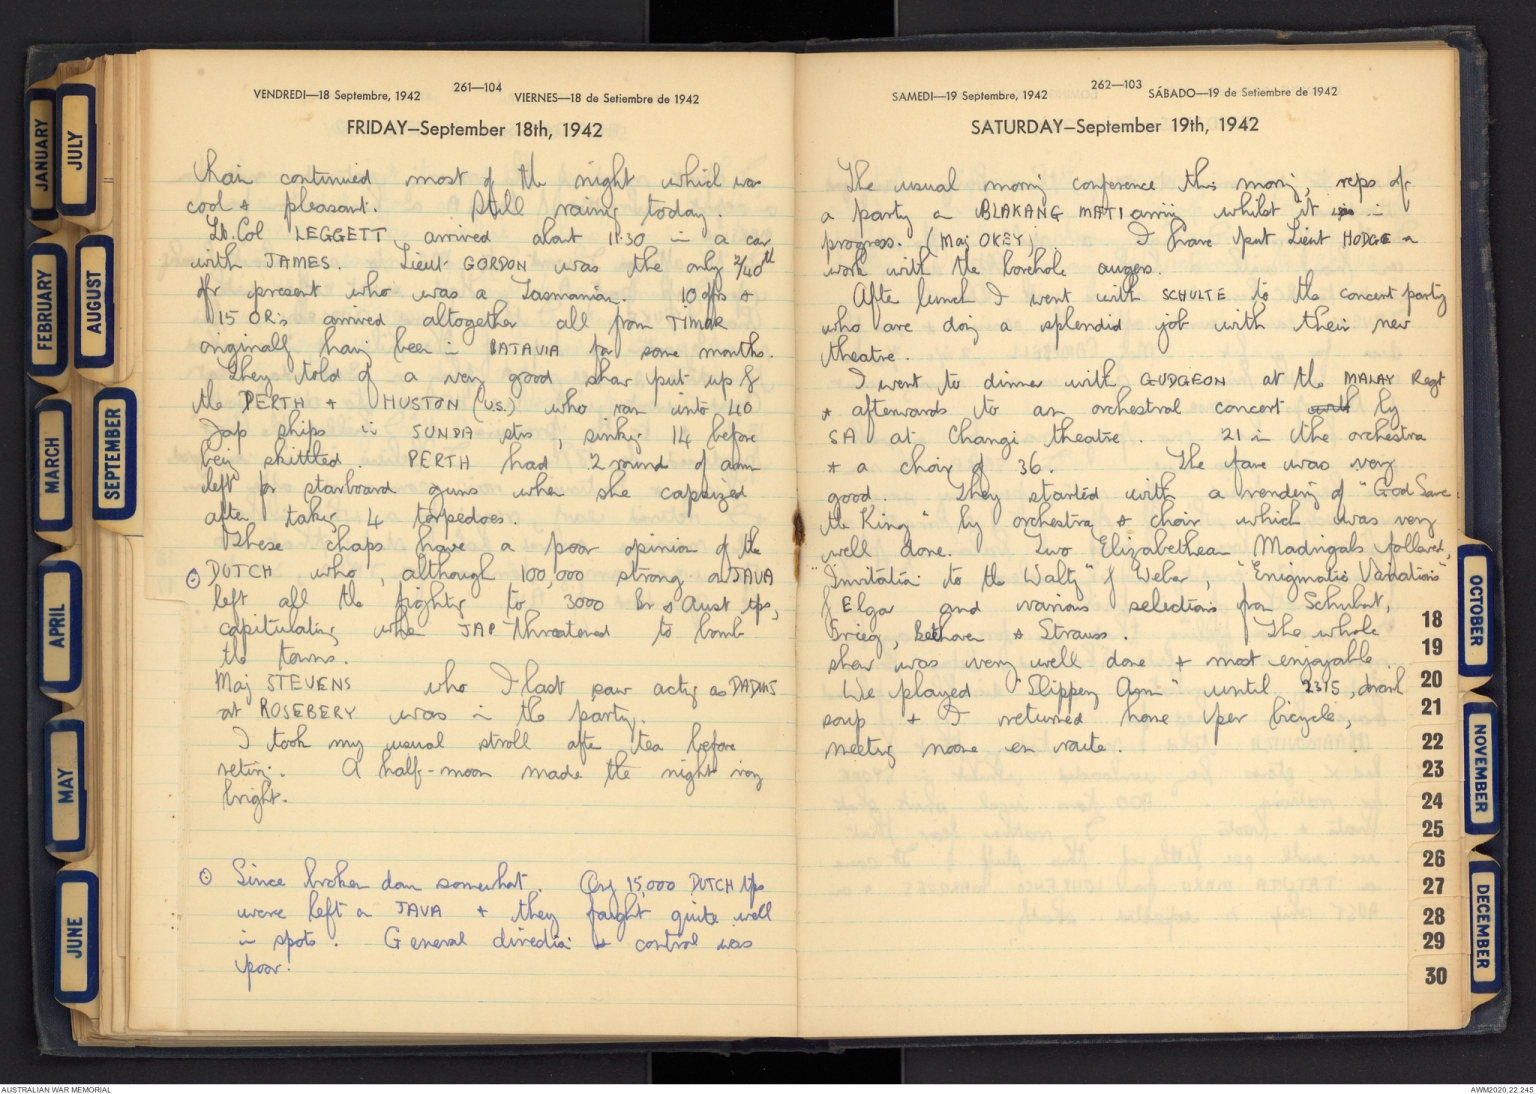 VENDREDI—18 Septembre, 1942
261—104
VIERNES—18 de Setiembre de 1942
FRIDAY—September 18th, 1942
Rain continued most of the night which was
cool & pleasant. Still raining today.
Lt. Col LEGGETT arrived about 11.30 in a car
with JAMES. Lieut. GORDON was the only 2/40th
offr present who was a Tasmanian. 10 offrs &
15 ORs arrived altogether all from TIMOR
originally having been in BATAVIA for some months.
They told of a very good show put up by
the PERTH & HUSTON (U.S.) who ran into 40
Jap ships in SUNDA strs, sinking 14 before
being skittled. PERTH had 2 rounds of amn
left for starboard guns when she capsized
after taking 4 torpedoes.
These chaps have a poor opinion of the
⊙ DUTCH who, although 100,000 strong on JAVA
left all the fighting to 3000 Br & Aust tps,
capitulating when JAP threatened to bomb
the towns.
Maj STEVENS who I last saw acting as DADMS
at ROSEBERY was in the party.
I took my usual stroll after tea before
retiring. A half-moon made the night very
bright.
⊙ Since broken down somewhat. Only 15,000 DUTCH tps
were left on JAVA & they fought quite well
in spots. General direction & control was
poor.
SAMEDI—19 Septembre, 1942
262—103
SÁBADO—19 de Setiembre de 1942
SATURDAY—September 19th, 1942
The usual morning conference this morning, reps of
a party on BLAKANG MATI arriving whilst it was in
progress. (Maj OKEY) I have put Lieut HODGE on
work with the borehole augers.
After lunch I went with SCHULTE to the concert party
who are doing a splendid job with their new
theatre.
I went to dinner with GUDGEON at the MALAY Regt
& afterwards to an orchestral concert with by
SA at Changi theatre. 21 in the orchestra
& a choir of 36. The fare was very
good. They started with a rendering of "God Save
the King" by orchestra & choir which was very
well done. Two Elizabethean Madrigals followed,
"Invitation to the Waltz" by Weber, "Enigmatic Variations"
by Elgar and various selections from Schubert,
Grieg, Beethoven & Strauss. The whole
show was very well done & most enjoyable.
We played "Slippery Sam" until 2315, drank
soup & I returned home per bicycle,
meeting noone en route.
JANUARY
FEBRUARY
MARCH
APRIL
MAY
JUNE
JULY
AUGUST
SEPTEMBER
OCTOBER
NOVEMBER
DECEMBER
18
19
20
21
22
23
24
25
26
27
28
29
30
AUSTRALIAN WAR MEMORIAL
AWM2020.22.245